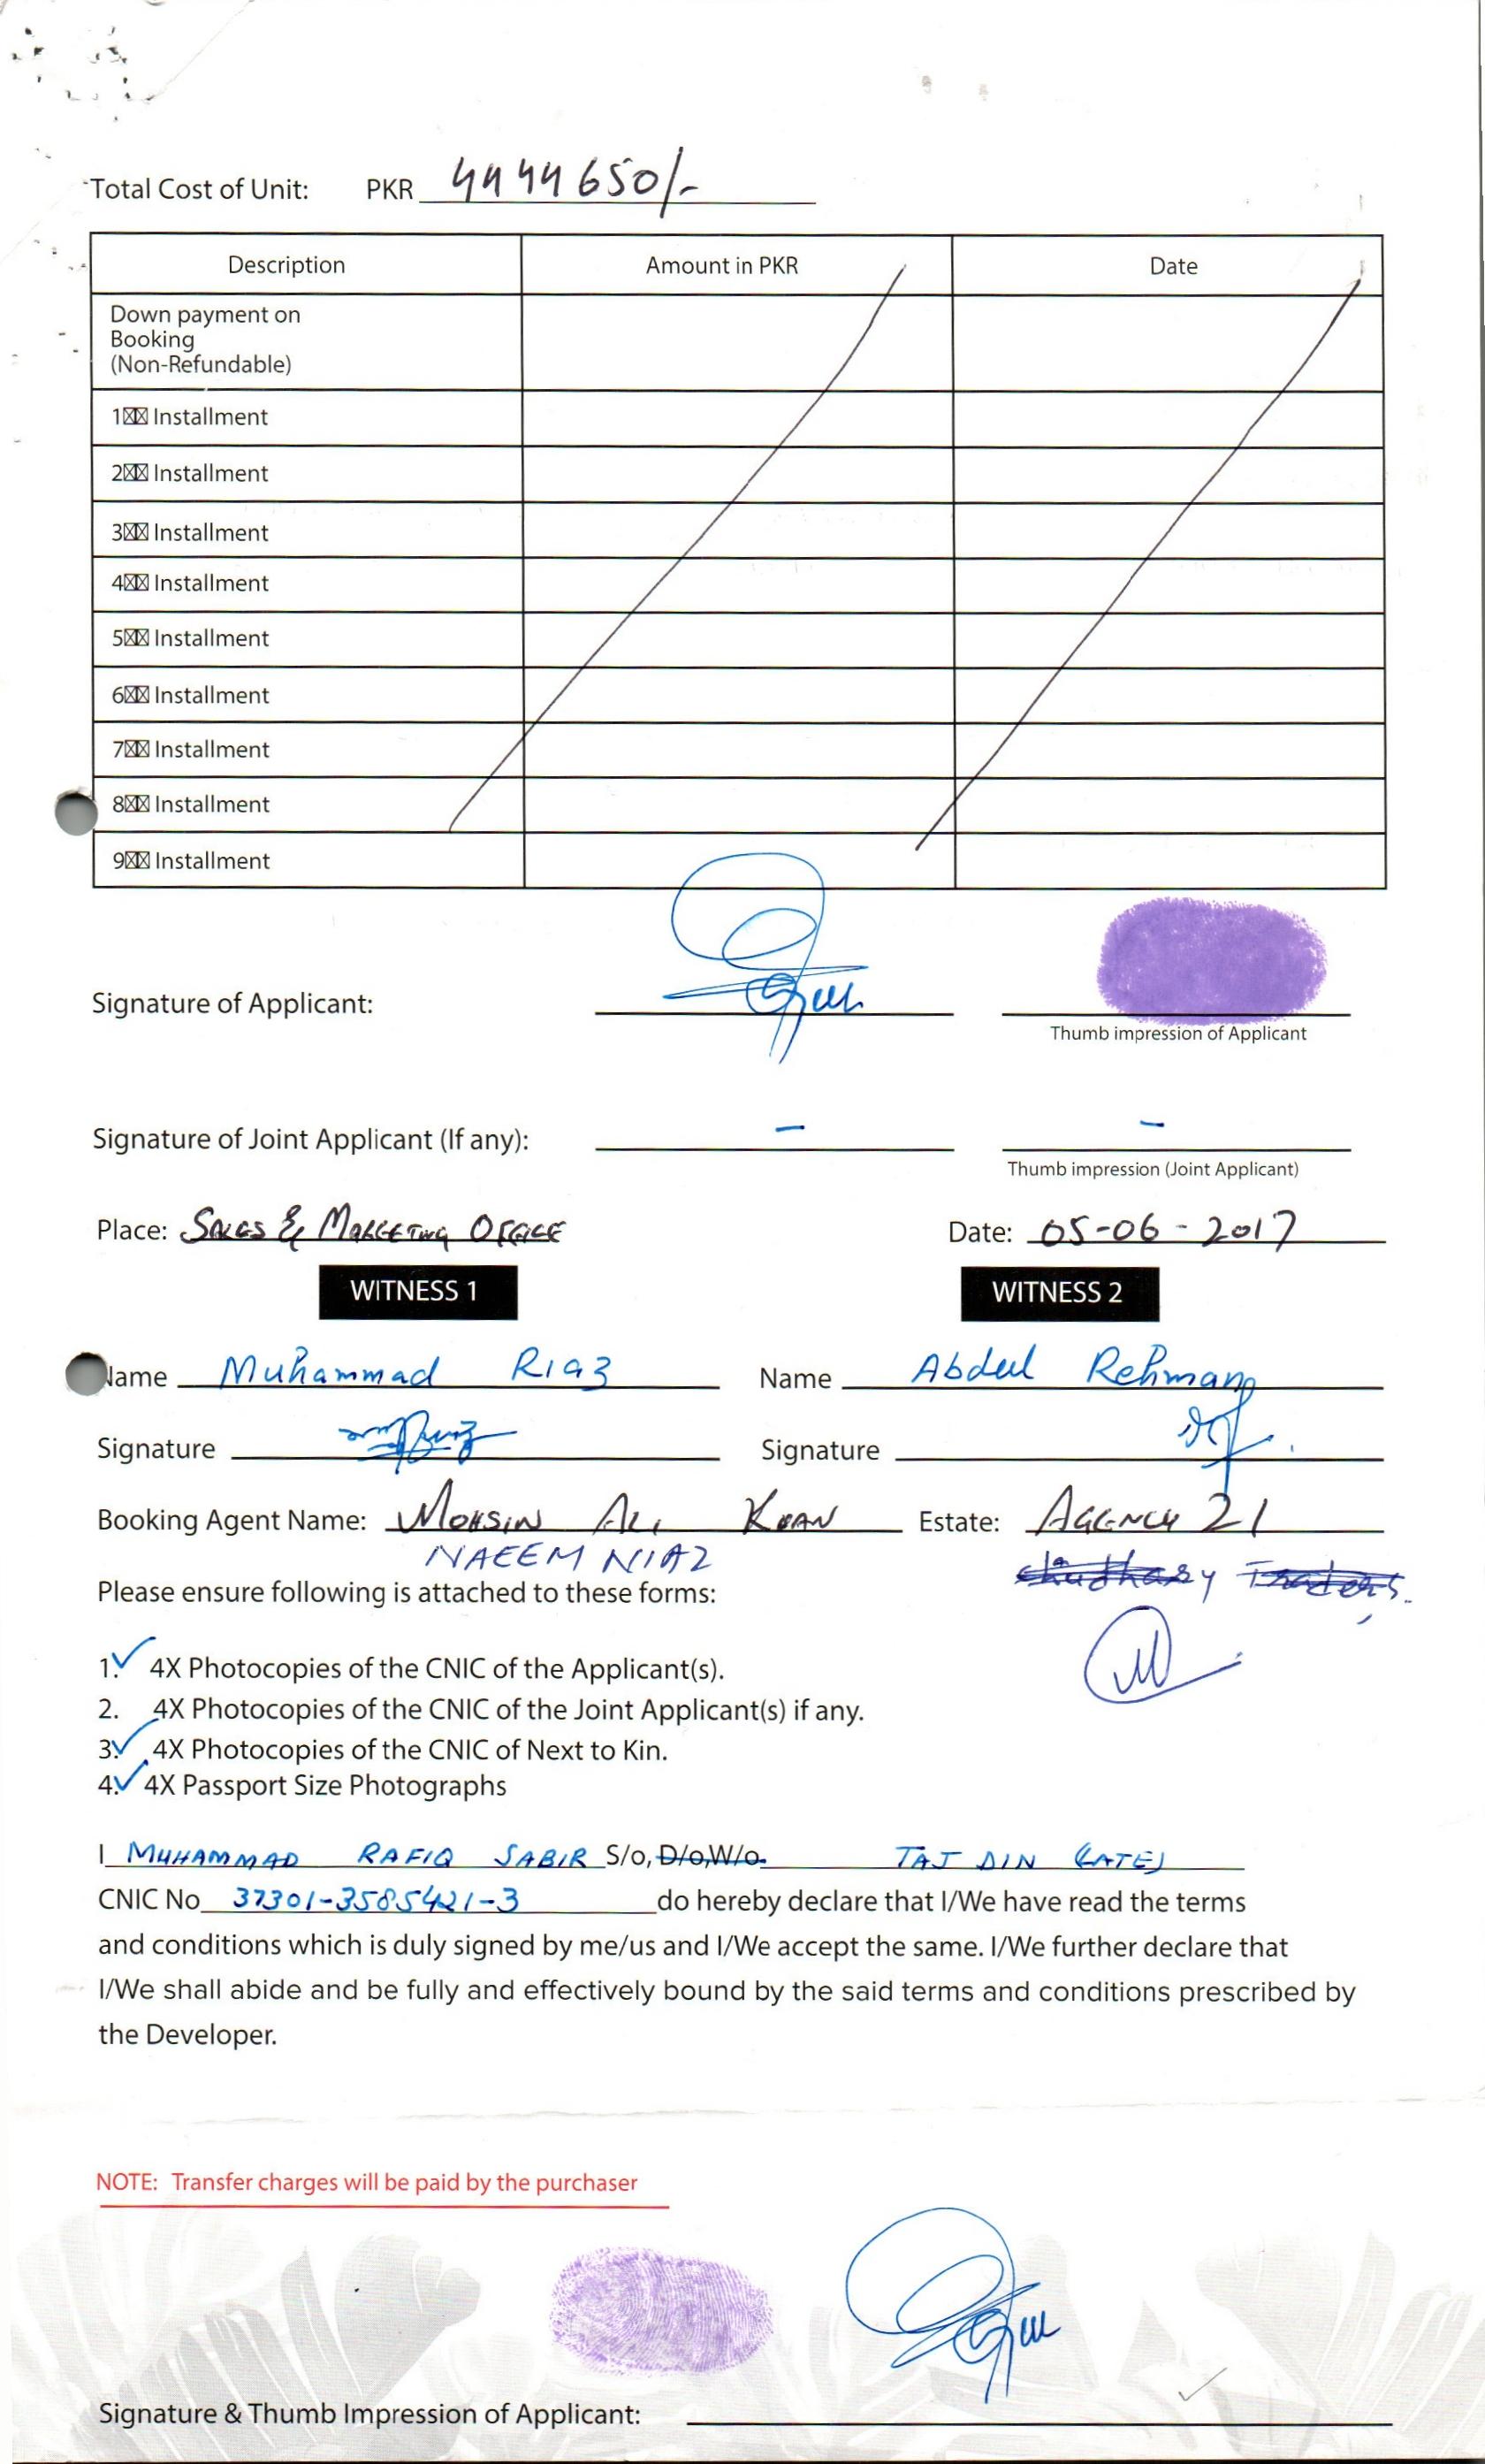 Total Cost of Unit: PKR 4444650/-
Description Amount in PKR Date
Down payment on
Booking
(Non-Refundable)
1☒☒ Installment
2☒☒ Installment
3☒☒ Installment
4☒☒ Installment
5☒☒ Installment
6☒☒ Installment
7☒☒ Installment
8☒☒ Installment
9☒☒ Installment
Signature of Applicant:
Thumb impression of Applicant
Signature of Joint Applicant (If any): - -
Thumb impression (Joint Applicant)
Place: SALES & MARKETING OFFICE Date: 05-06-2017
WITNESS 1 WITNESS 2
Name Muhammad Riaz Name Abdul Rehman
Signature Signature
Booking Agent Name: MOHSIN ALI KHAN Estate: AGENCY 21
NAEEM NIAZ Chudhary Traders.
Please ensure following is attached to these forms:
1. ✓ 4X Photocopies of the CNIC of the Applicant(s).
2. 4X Photocopies of the CNIC of the Joint Applicant(s) if any.
3. ✓ 4X Photocopies of the CNIC of Next to Kin.
4. ✓ 4X Passport Size Photographs
I MUHAMMAD RAFIQ SABIR S/o, D/o,W/o. TAJ DIN (LATE)
CNIC No 37301-3585421-3 do hereby declare that I/We have read the terms
and conditions which is duly signed by me/us and I/We accept the same. I/We further declare that
I/We shall abide and be fully and effectively bound by the said terms and conditions prescribed by
the Developer.
NOTE: Transfer charges will be paid by the purchaser
Signature & Thumb Impression of Applicant: